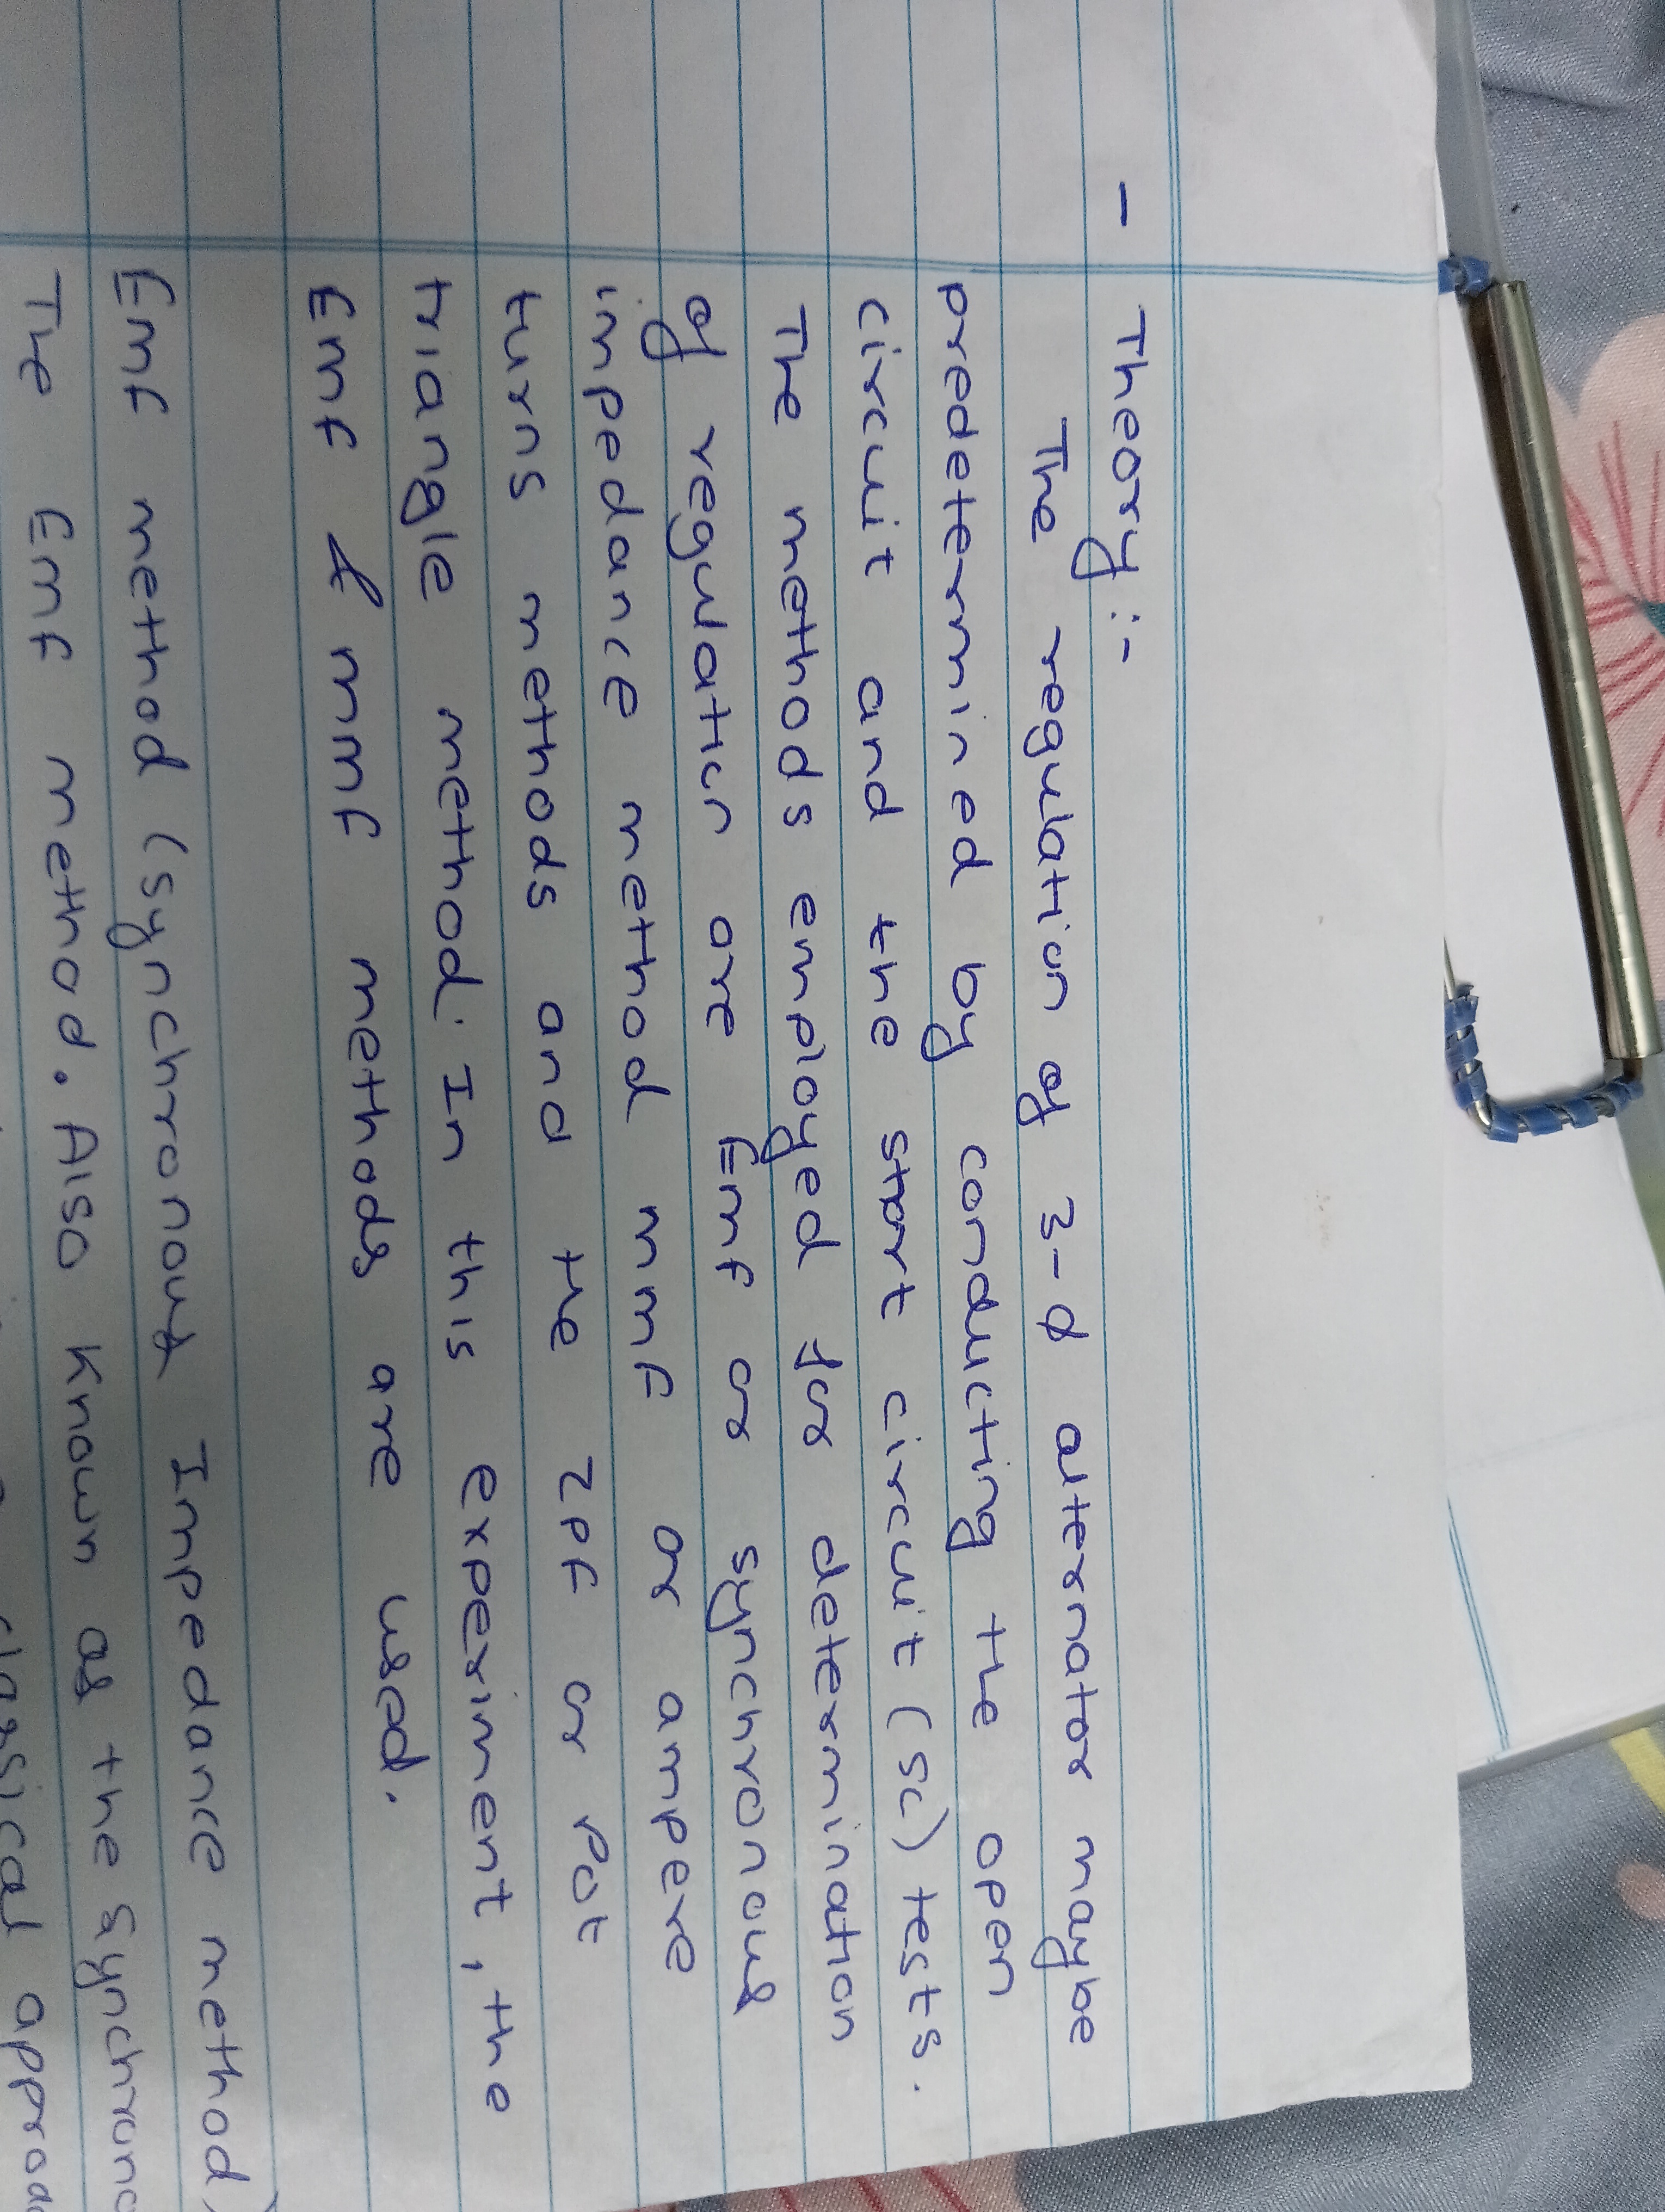 - Theory:-
The regulation of 3-φ alternator maybe
predetermined by conducting the open
circuit and the start circuit (sc) tests.
The methods employed for determination
of regulation are Emf or synchronous
impedance method mmf or ampere
turns methods and the ZPF or Pot
triangle method. In this experiment, the
Emf & mmf methods are used.
Emf method (synchronout Impedance method)
The Emf method. Also known as the synchrono
classical approa